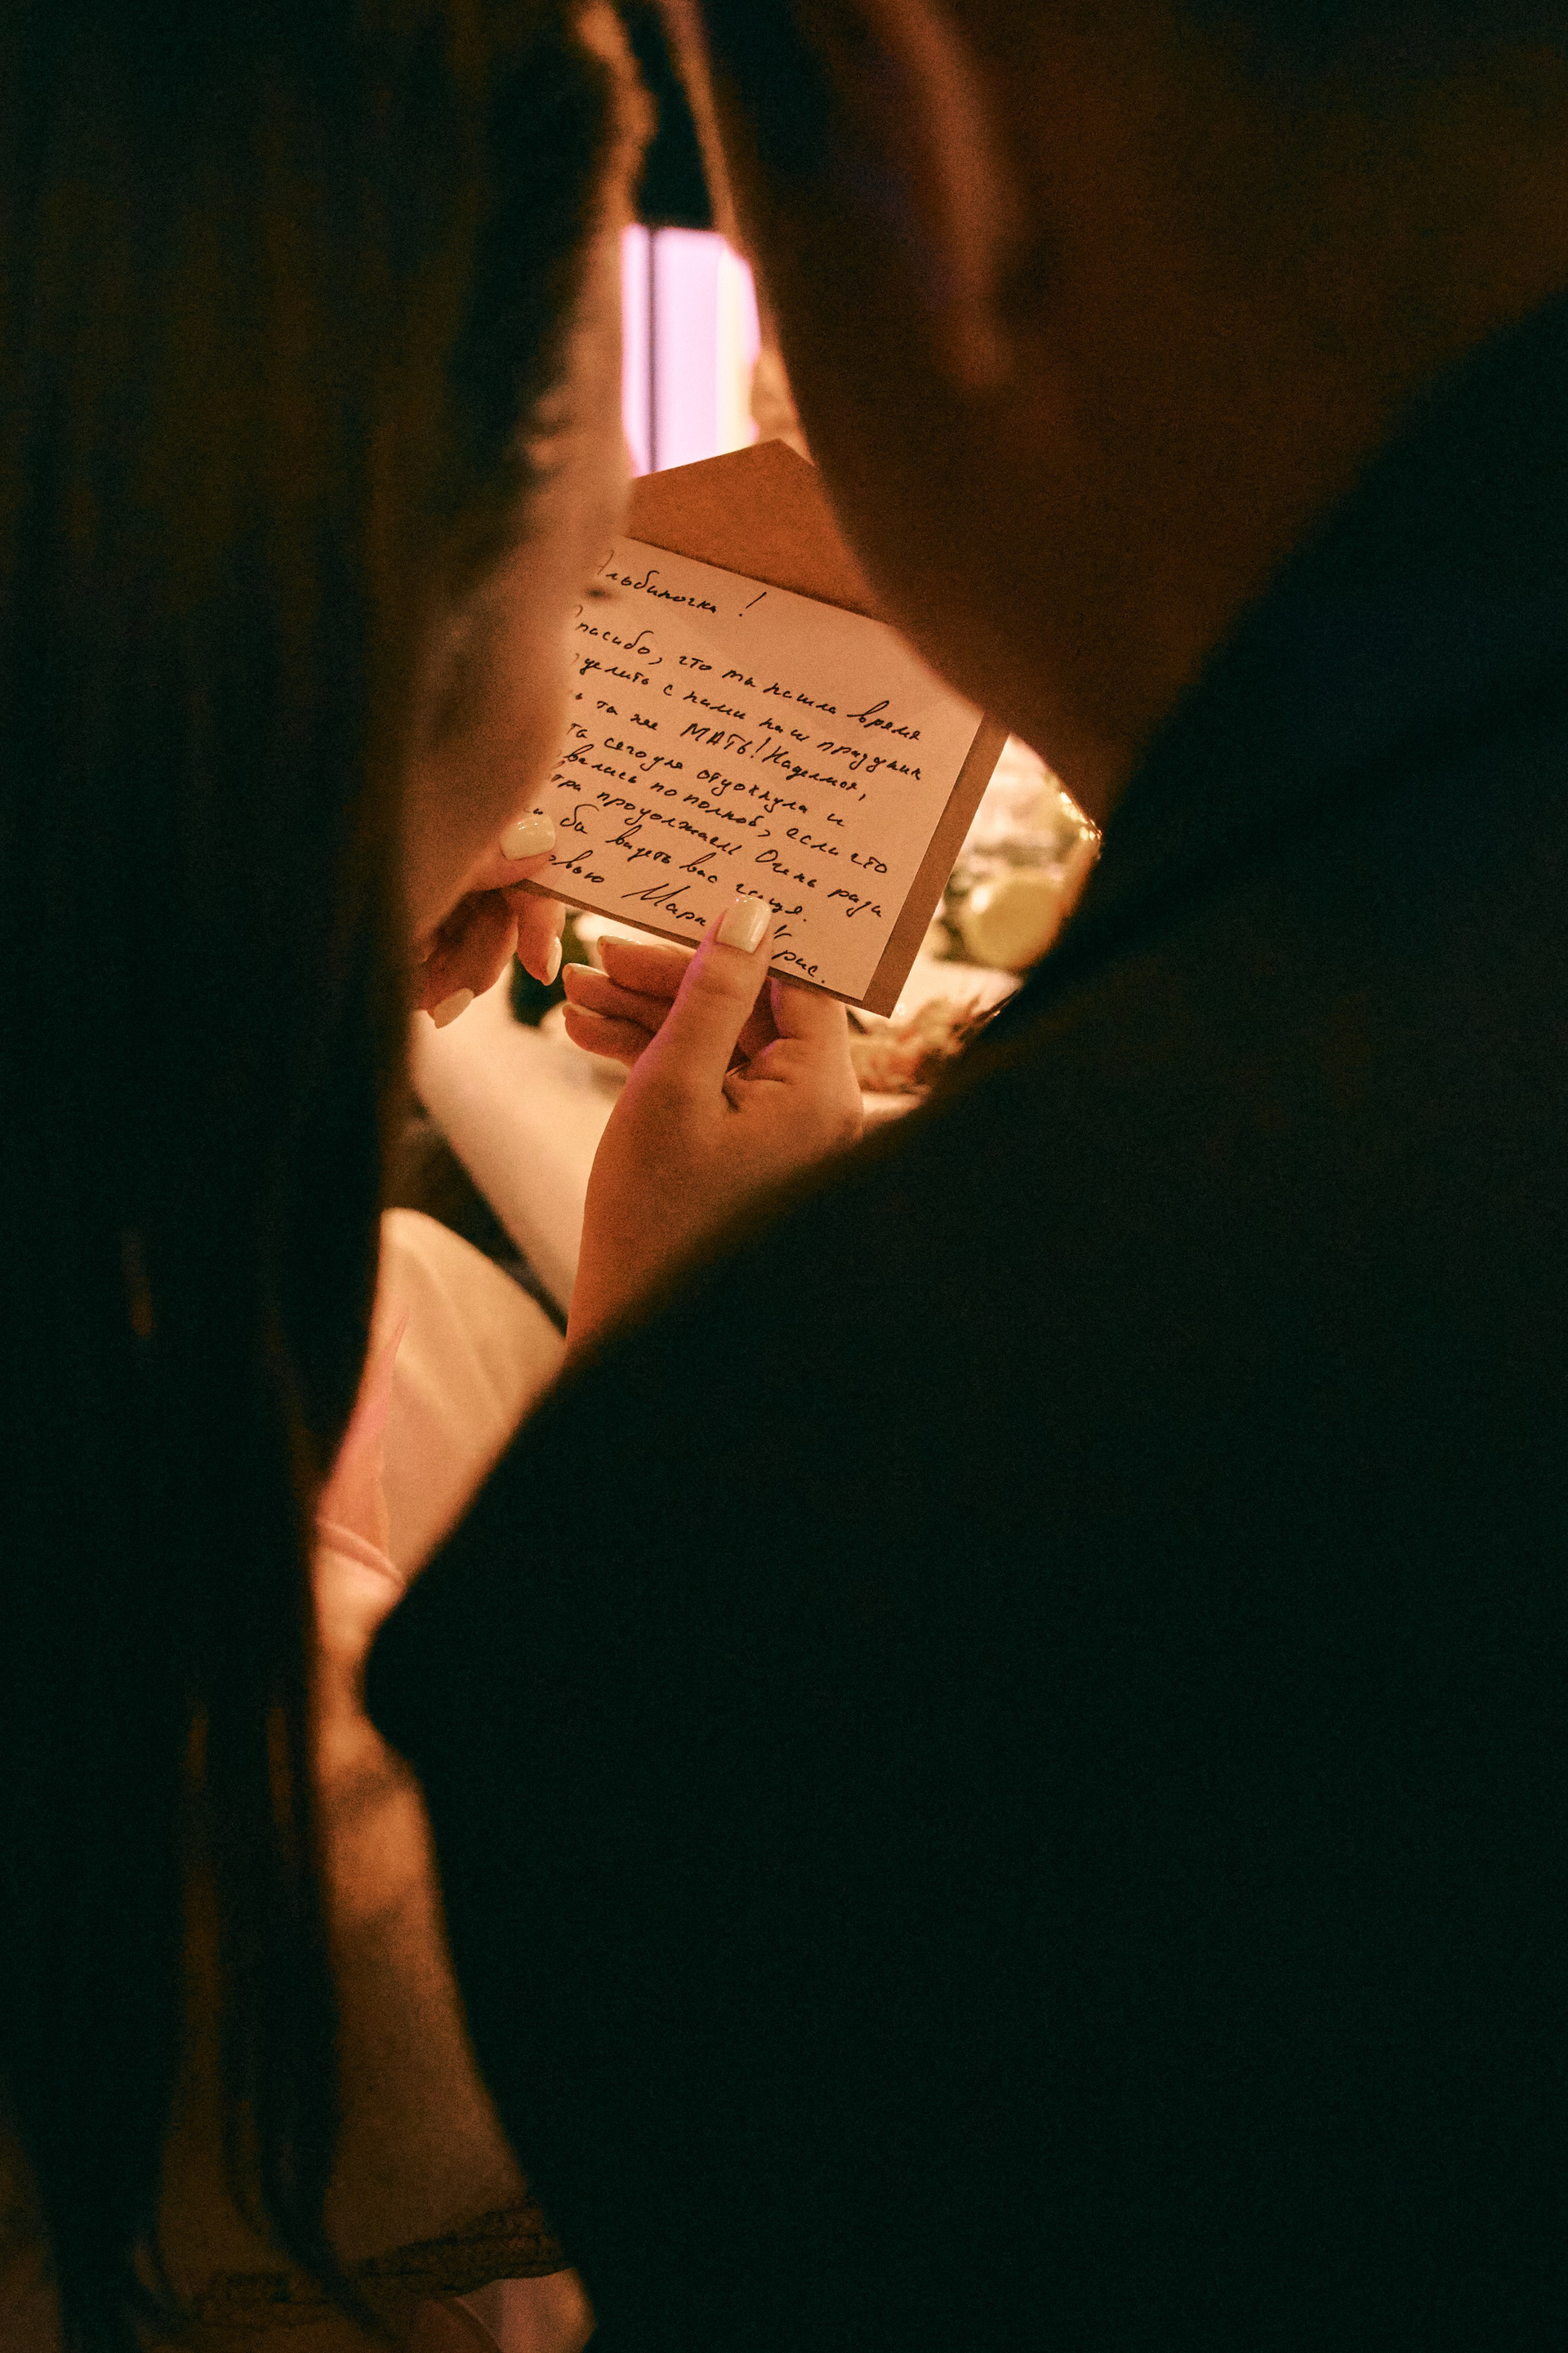 Альбиночка!
Спасибо, что ты нашла время
делить с нами наш праздник
ь та же МАТЬ! Надеемся,
та сегодня отдохнула и
валась по полной, если что
тра продолжаем! Очень рады
бы видеть вас чаще.
овью Мари Крис.